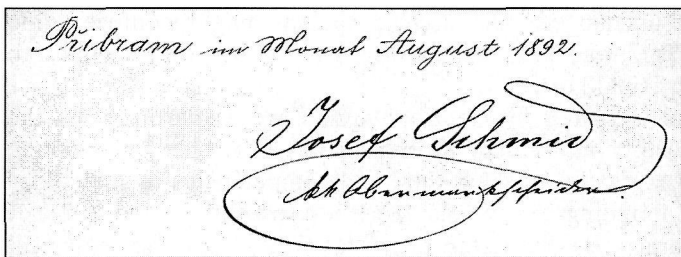 Přibram im Monat August 1892.
Josef Schmid
kk Obermarkscheider.